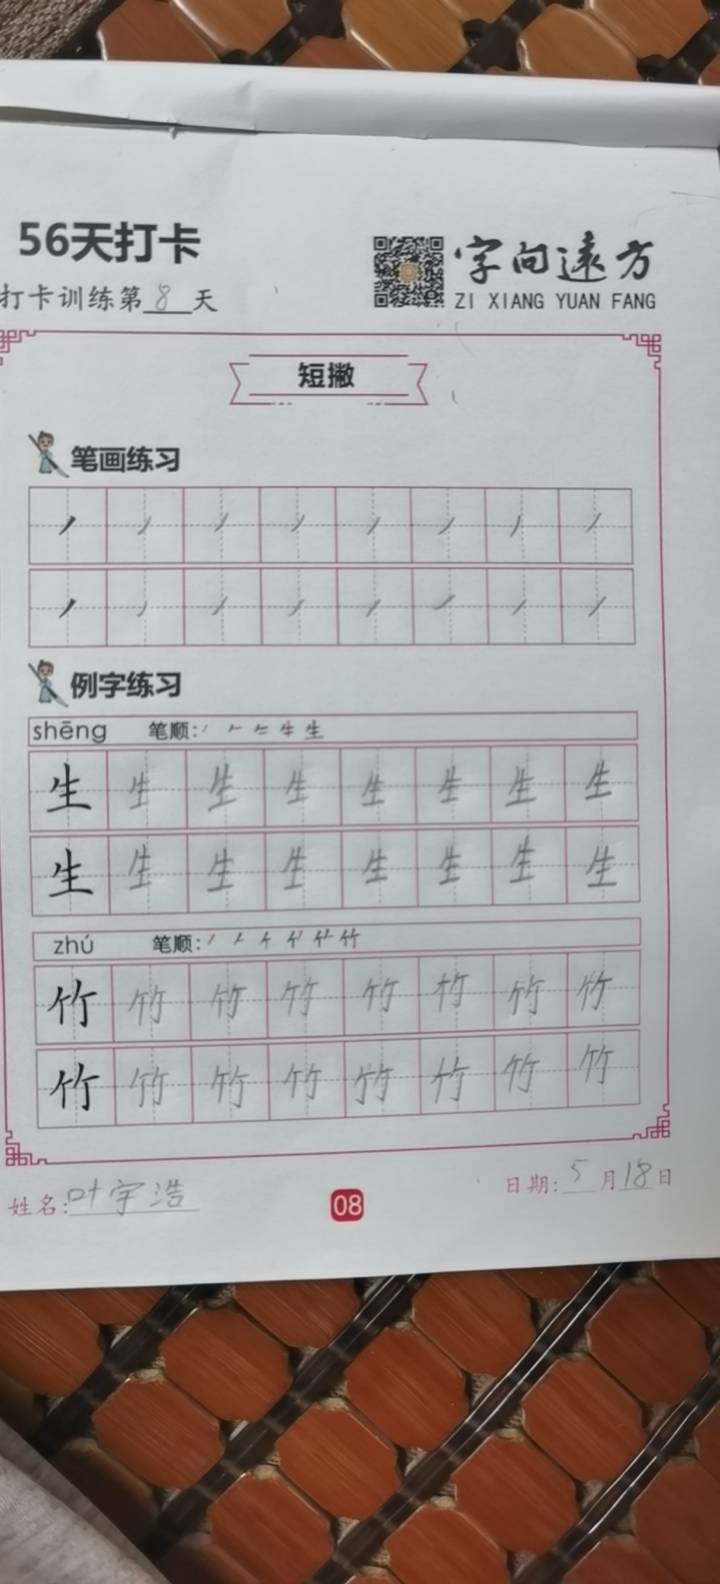 56天打卡
字向远方
ZI XIANG YUAN FANG
打卡训练第8天
短撇
笔画练习
例字练习
shēng 笔顺:
生 生 生 生 生 生 生 生
生 生 生 生 生 生 生 生
zhú 笔顺:
竹 竹 竹 竹 竹 竹 竹 竹
竹 竹 竹 竹 竹 竹 竹 竹
姓名:叶宇浩
08
日期:5月18日